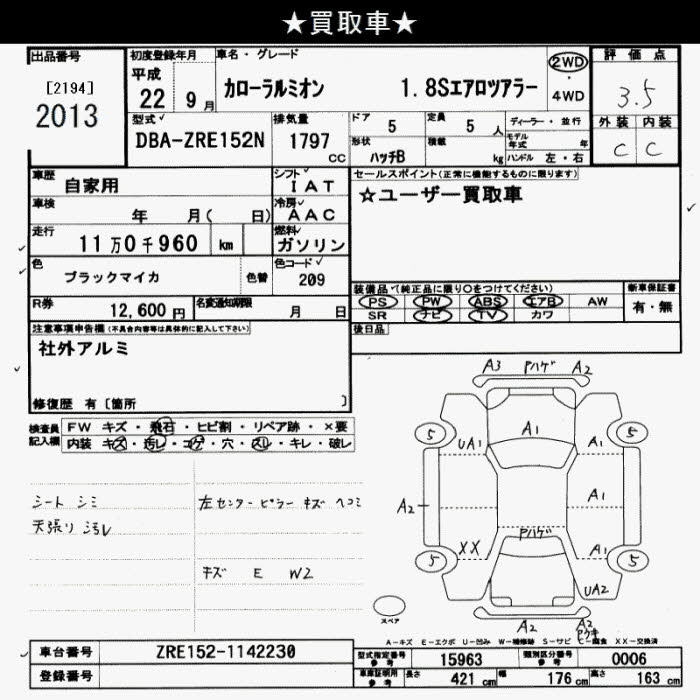 ★買取車★
出品番号
[2194]
2013
初度登録年月
平成
22 9月
車名・グレード
カローラルミオン 1.8Sエアロツアラー
2WD
・
4WD
評価点
3.5
外装 内装
C C
型式
DBA-ZRE152N
排気量
1797
CC
ドア 5
定員 5 人
形状
ハッチB
積載 kg
ディーラー・並行
モデル年式 年
ハンドル 左・右
車歴 自家用
シフト
IAT
セールスポイント(正常に機能するものに限ります)
☆ユーザー買取車
車検 年 月( 日)
冷房
AAC
走行 11万0千960 km
燃料
ガソリン
色 ブラックマイカ 色替
色コード
209
装備品(純正品に限り○をつけてください)
PS PW ABS エアB AW
SR ナビ TV カワ
新車保証書
有・無
R券 12,600円
名変通知期限 月 日
後日品
注意事項申告欄(不具合内容等は具体的に記入して下さい)
社外アルミ
修復歴 有[箇所 ]
検査員記入欄
FW キズ・飛石・ヒビ割・リペア跡・×要
内装 キズ・汚レ・コゲ・穴・スレ・キレ・破レ
シート シミ
天張り 汚レ
左センターピラー キズ ヘコミ
キズ E W2
A3 Pハゲ A2
5 5
UA1 A1 A1
A2 A1
Pハゲ
XX A1
5 5
UA2
A2 A2
スペア
A-キズ E-エクボ U-凹み W-補修跡 S-サビ C-腐食 XX-交換済
車台番号 ZRE152-1142230
登録番号
型式指定番号
参考
15963
類別区分番号
参考
0006
車庫証明用
参考
長さ 421 cm 幅 176 cm 高さ 163 cm